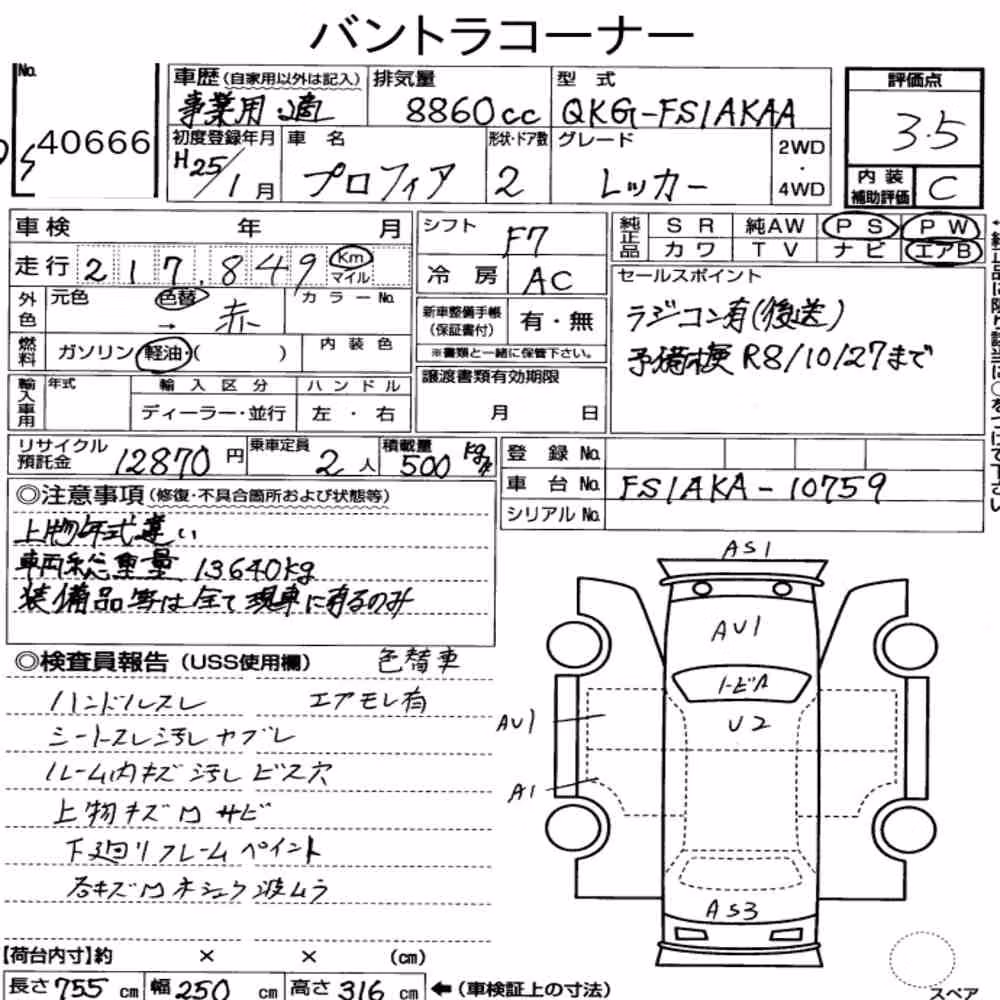 バントラコーナー
No.
40666
車歴 (自家用以外は記入) 排気量 型式 評価点
事業用 適 8860cc QKG-FS1AKAA 3.5
初度登録年月 車名 形状・ドア数 グレード 2WD・4WD
H25/1月 プロフィア 2 レッカー
内装補助評価 C
車検 年 月
シフト F7
純正品 SR 純AW PS PW
カワ TV ナビ エアB
走行 217,849 Km マイル
冷房 AC
セールスポイント
ラジコン有(後送)
予備検 R8/10/27まで
外色 元色 色替 → 赤 カラーNo.
新車整備手帳(保証書付) 有・無
※書類と一緒に保管下さい。
燃料 ガソリン・軽油・( ) 内装色
譲渡書類有効期限
月 日
輸入車用 年式 輸入区分 ハンドル
ディーラー・並行 左・右
リサイクル預託金 12870円 乗車定員 2人 積載量 500kg
登録No.
車台No. FS1AKA-10759
シリアルNo.
◎注意事項 (修復・不具合箇所および状態等)
上物年式違い
車両総重量 13640kg
装備品等は全て現車に有るのみ
◎検査員報告 (USS使用欄) 色替車
ハンドルスレ エアモレ有
シートスレ汚レヤブレ
ルーム内キズ汚レビス穴
上物キズ凹サビ
下廻りフレームペイント
各キズ凹
AS1
AU1
トビA
U2
AU1
A1
AS3
【荷台内寸】約 × × (cm)
長さ755cm 幅250cm 高さ316cm ←(車検証上の寸法)
スペア